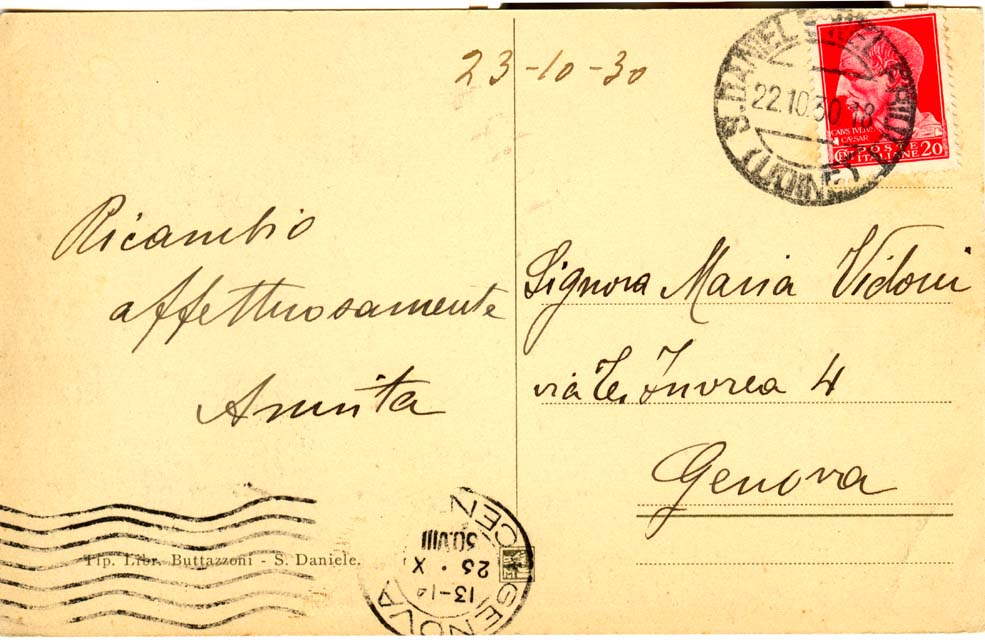 23-10-30
S. DANIEL
22.10.30.18
(UDINE)
CAIVS IVLIVS
CÆSAR
POSTE
ITALIANE 20
Ricambio
affettuosamente
Aminta
Signora Maria Vidoni
via Invrea 4
Genova
Tip. Libr. Buttazzoni - S. Daniele.
GENOVA
CEN
13-1
23 . X
30.VIII